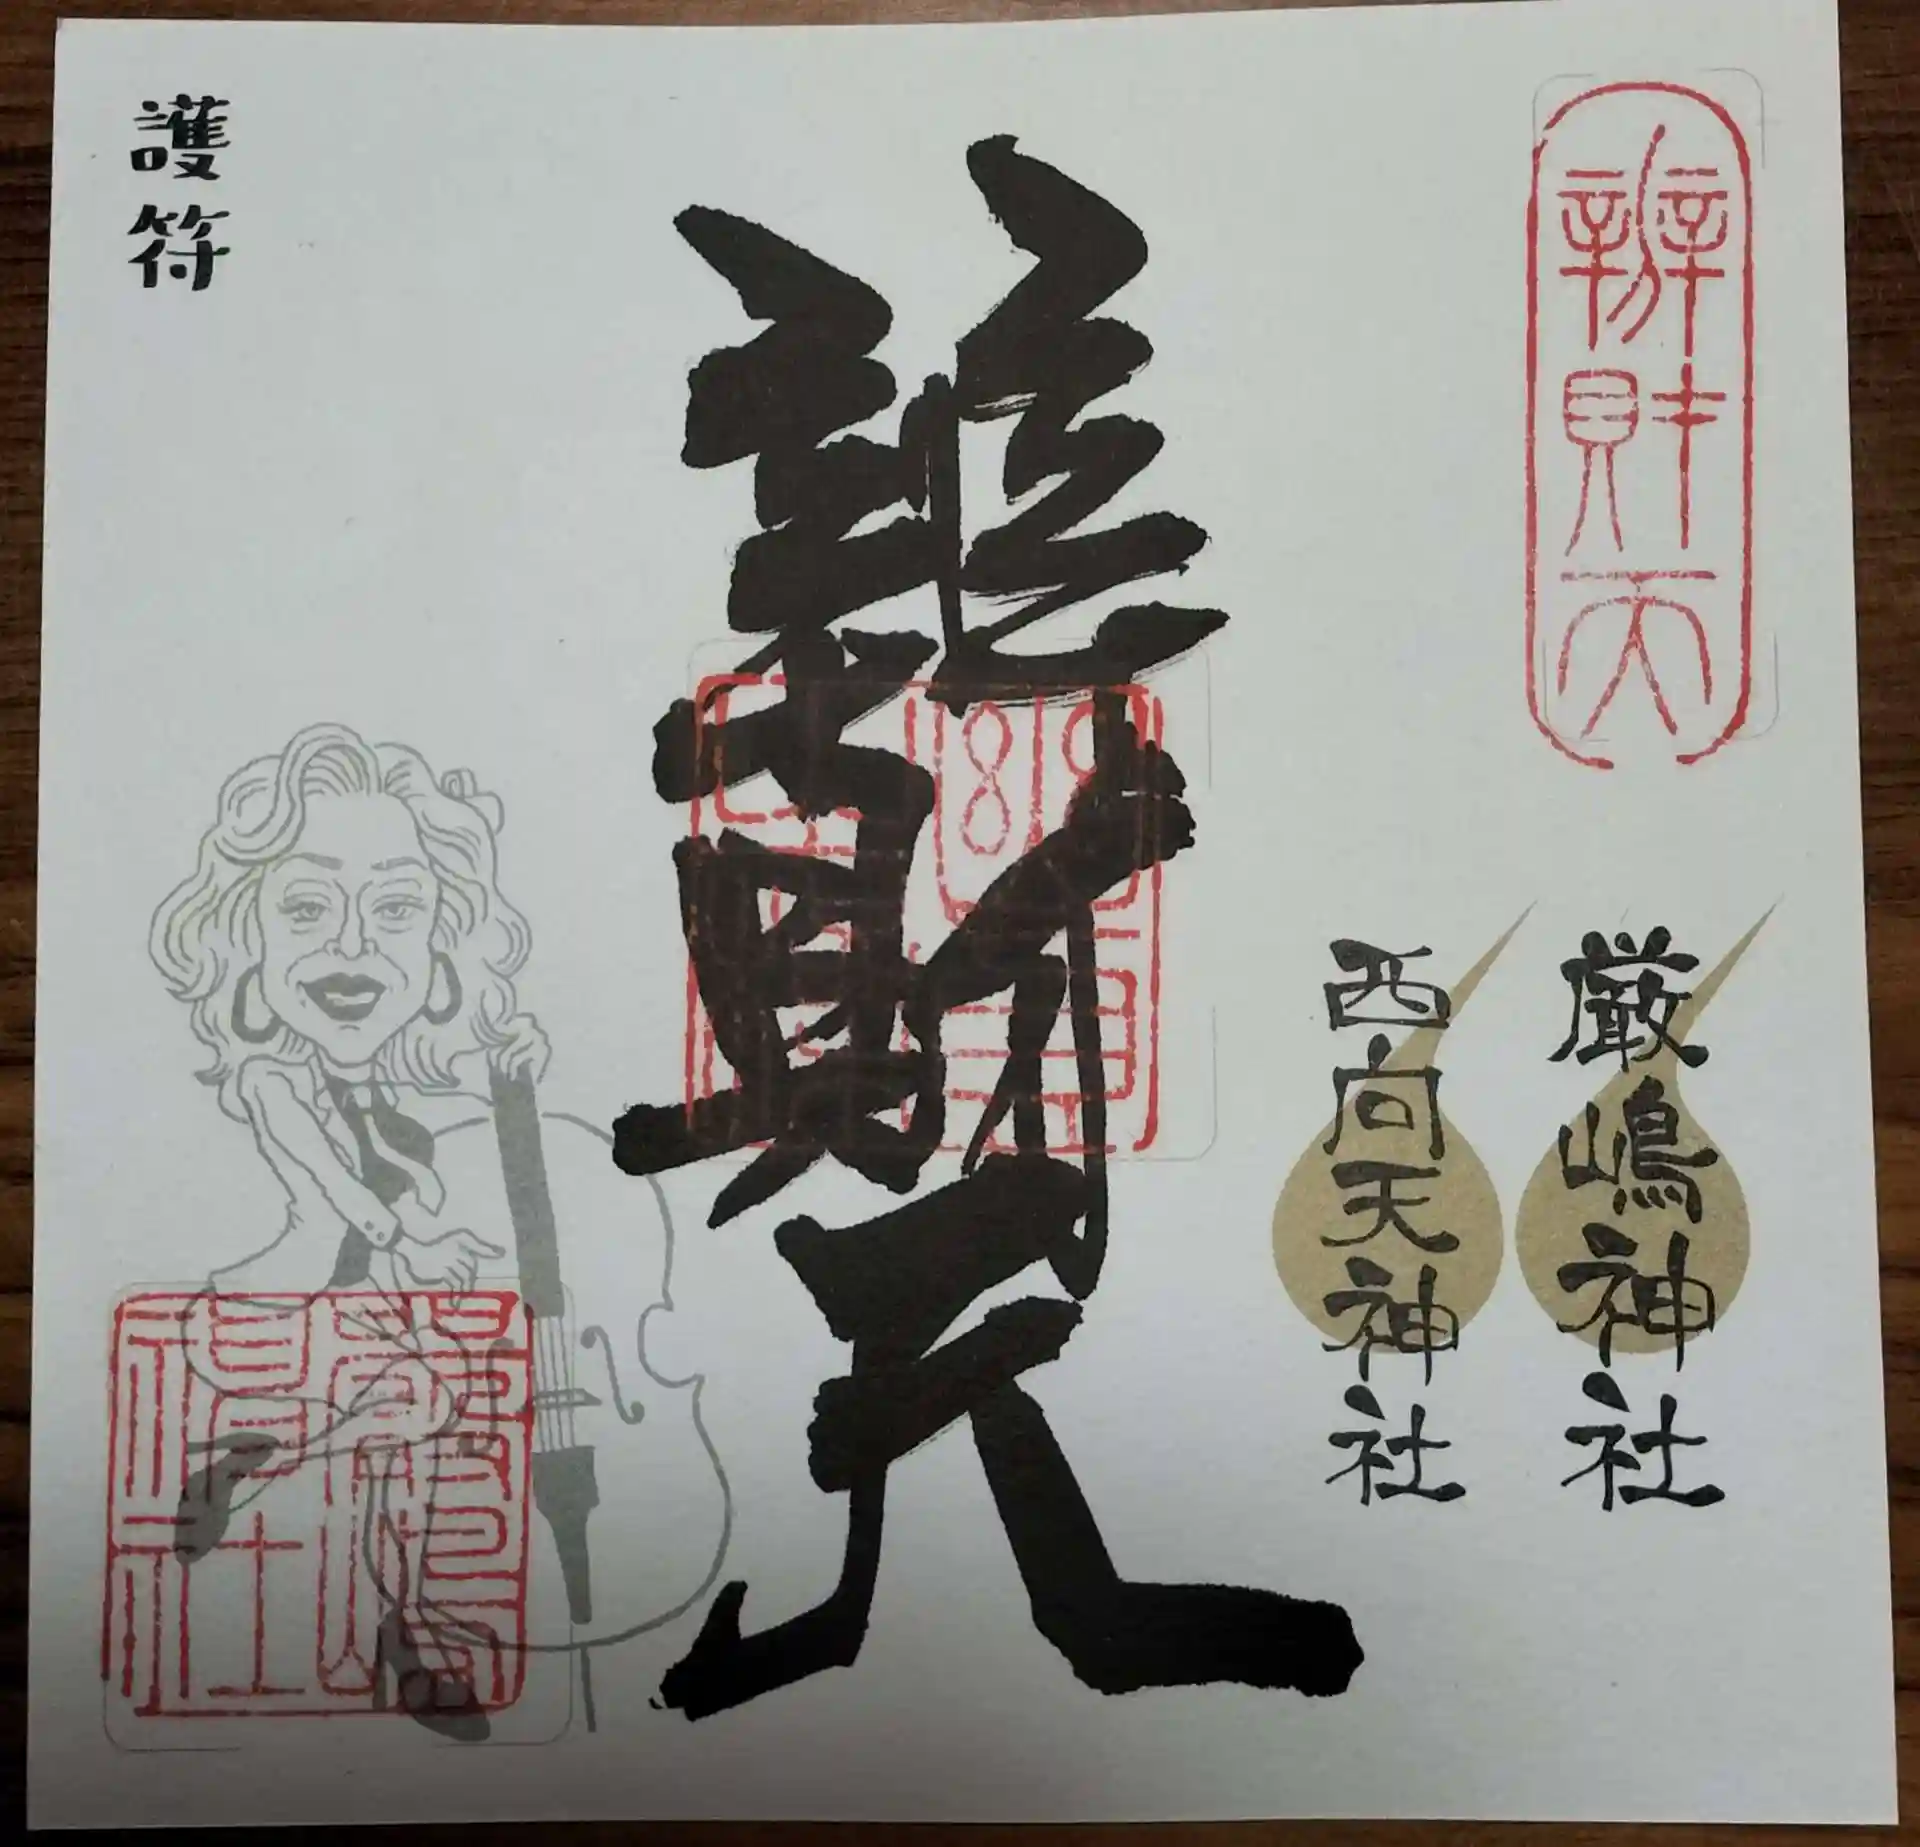 辨財天
厳嶋神社
西向天神社
辨財天
護符
厳嶋神社